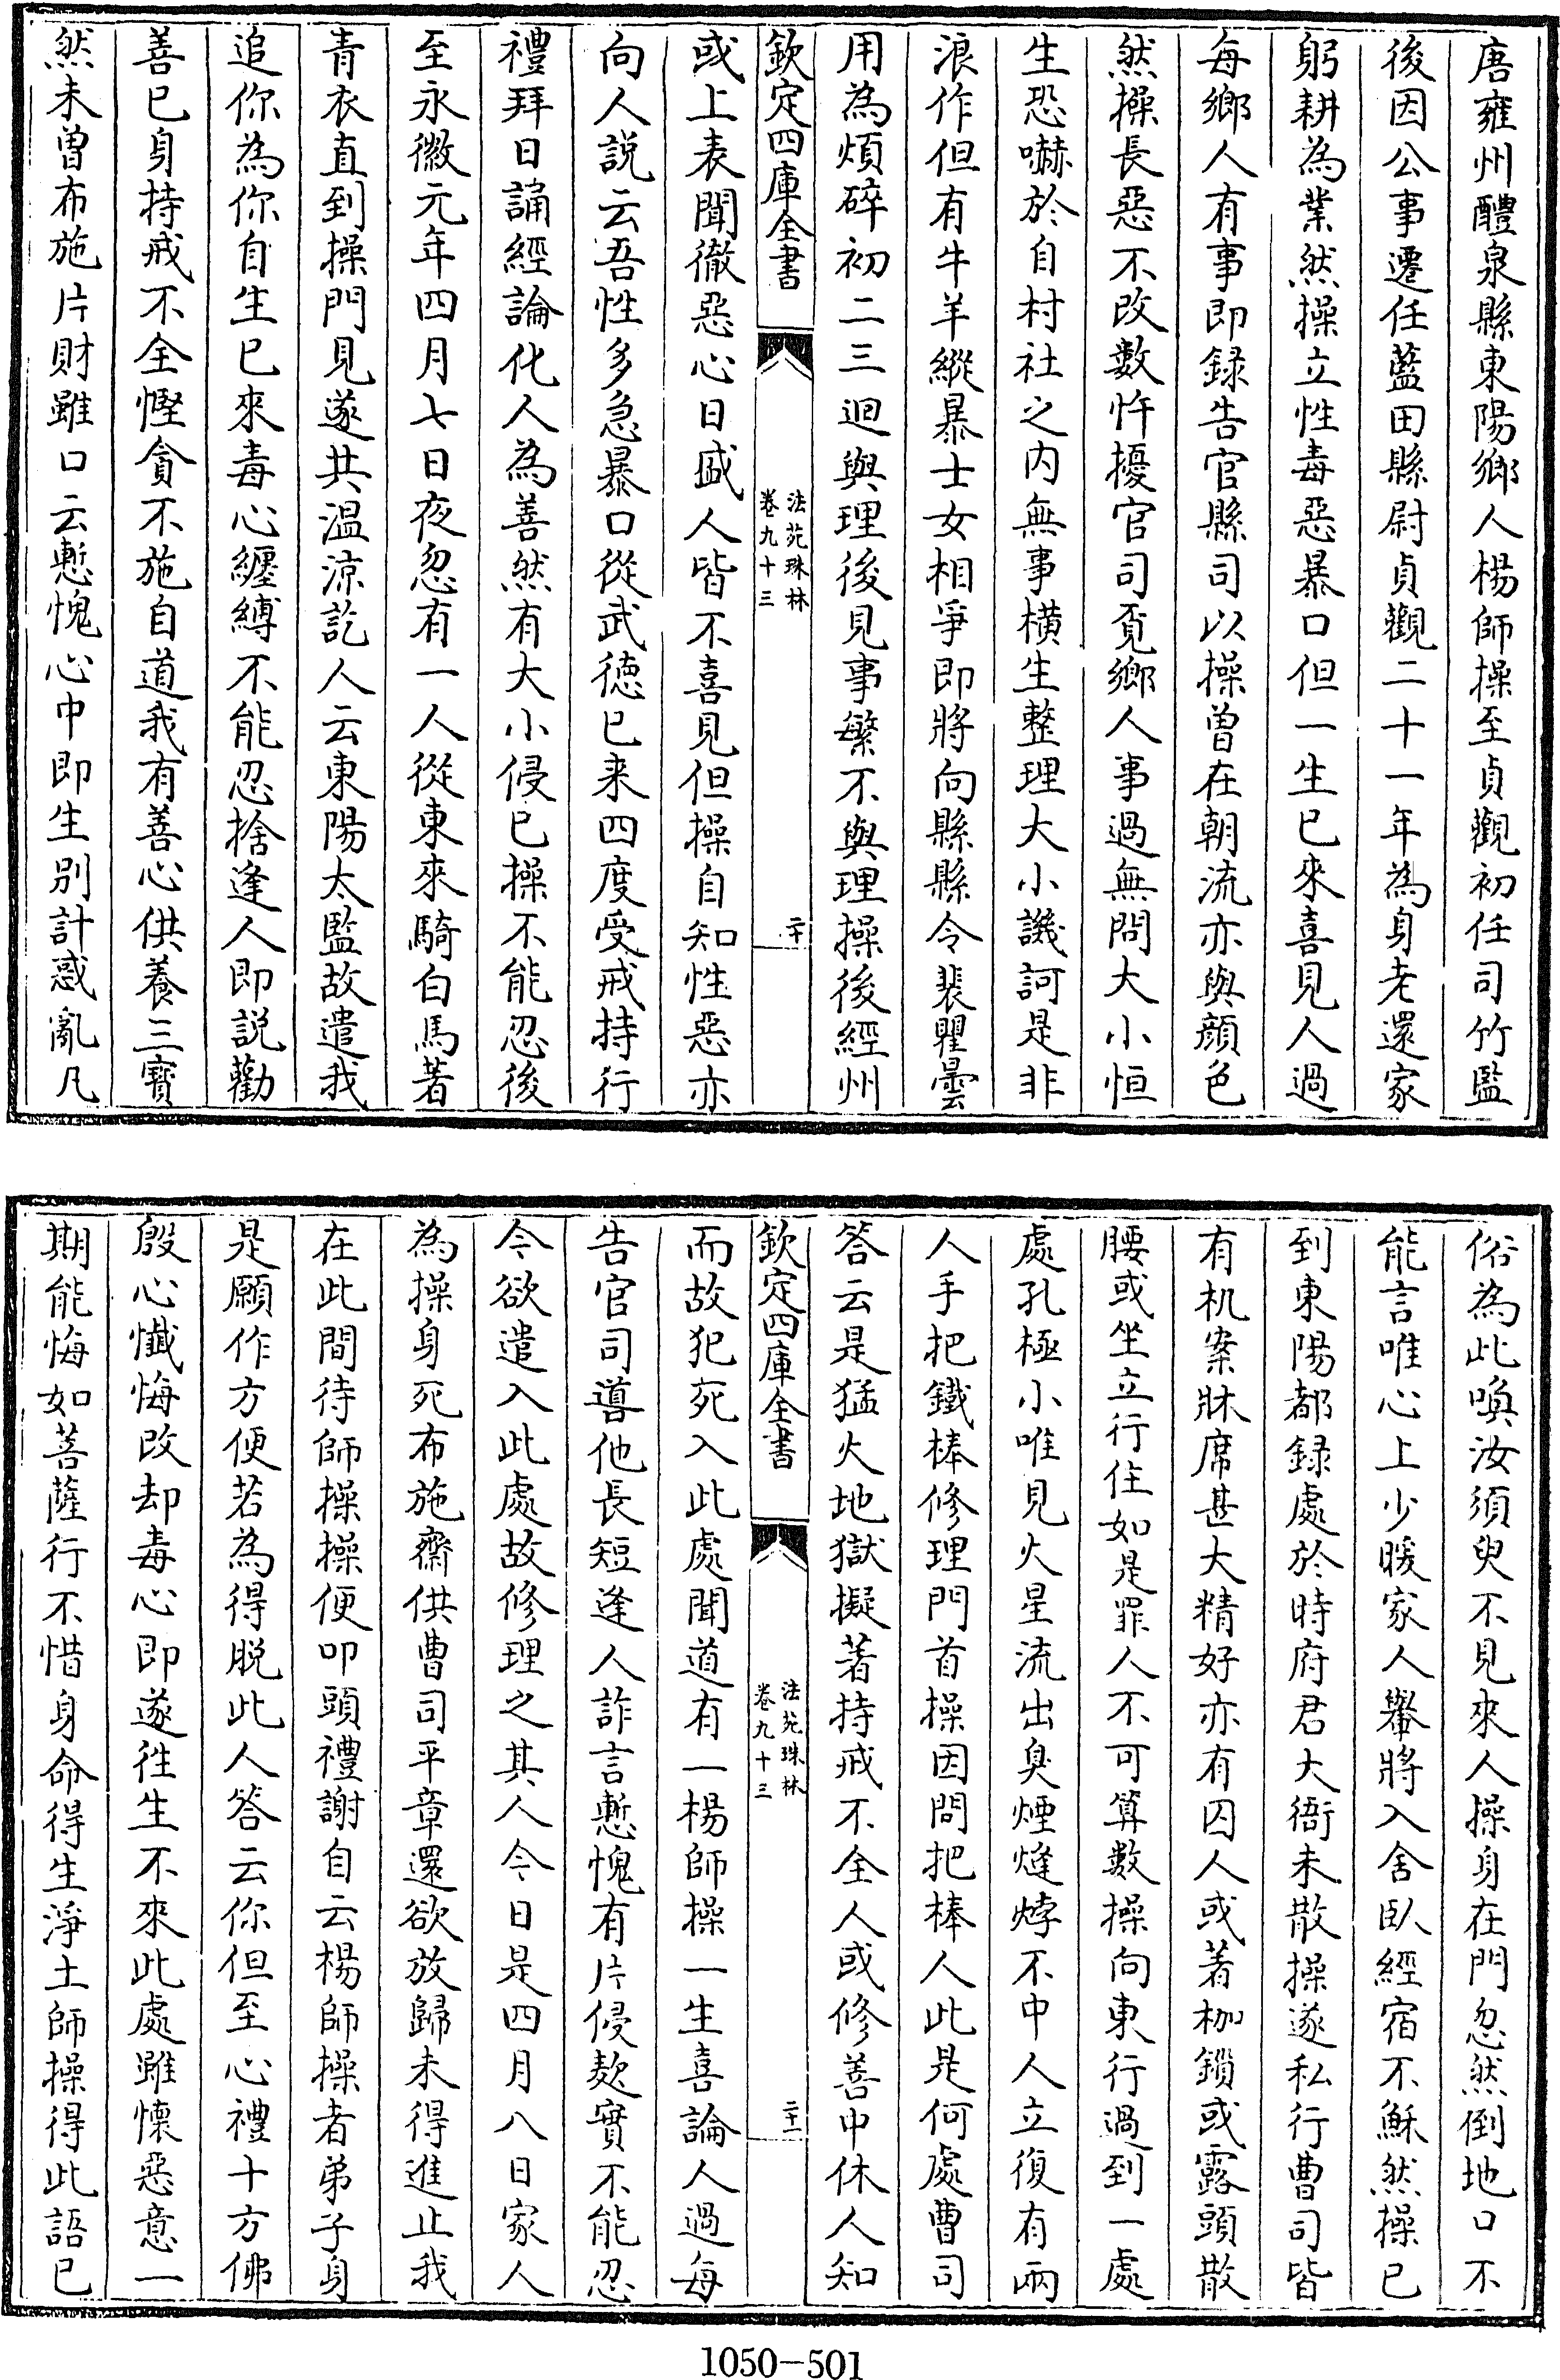 唐雍州醴泉縣東陽鄉人楊師操至貞觀初任司竹監
後因公事遷任藍田縣尉貞觀二十一年為身老還家
躬耕為業然操立性毒惡暴口但一生已來喜見人過
每鄉人有事即録告官縣司以操曾在朝流亦與顔色
然操長惡不改數忤擾官司覔鄉人事過無問大小恒
生恐嚇於自村社之內無事橫生整理大小譏訶是非
浪作但有牛羊縱暴士女相爭即將向縣縣令裴瞿曇
用為煩碎初二三迴與理後見事繁不與理操後經州
欽定四庫全書
法苑珠林
卷九十三
二十
或上表聞徹惡心日盛人皆不喜見但操自知性惡亦
向人説云吾性多急暴口從武德已来四度受戒持行
禮拜日誦經論化人為善然有大小侵已操不能忍後
至永徽元年四月七日夜忽有一人從東來騎白馬著
青衣直到操門見遂共温涼訖人云東陽太監故遣我
追你為你自生已來毒心纏縛不能忍捨逢人即説勸
善已身持戒不全慳貪不施自道我有善心供養三寳
然未曾布施片財雖口云慙愧心中即生别計惑亂凡
俗為此喚汝須臾不見來人操身在門忽然倒地口不
能言唯心上少暖家人轝將入舍臥經宿不穌然操已
到東陽都録處於時府君大衙未散操遂私行曹司皆
有机案牀席甚大精好亦有囚人或著枷鎖或露頭散
腰或坐立行住如是罪人不可算數操向東行過到一處
處孔極小唯見火星流出臭煙熢㶿不中人立復有兩
人手把鐵棒修理門首操因問把棒人此是何處曹司
答云是猛火地獄擬著持戒不全人或修善中休人知
欽定四庫全書
法苑珠林
卷九十三
二十一
而故犯死入此處聞道有一楊師操一生喜論人過每
告官司噵他長短逢人詐言慙愧有片侵欺實不能忍
今欲遣入此處故修理之其人今日是四月八日家人
為操身死布施齋供曹司平章還欲放歸未得進止我
在此間待師操操便叩頭禮謝自云楊師操者弟子身
是願作方便若為得脱此人答云你但至心禮十方佛
殷心懺悔改却毒心即遂徃生不來此處雖懷惡意一
期能悔如菩薩行不惜身命得生淨土師操得此語已
1050-501